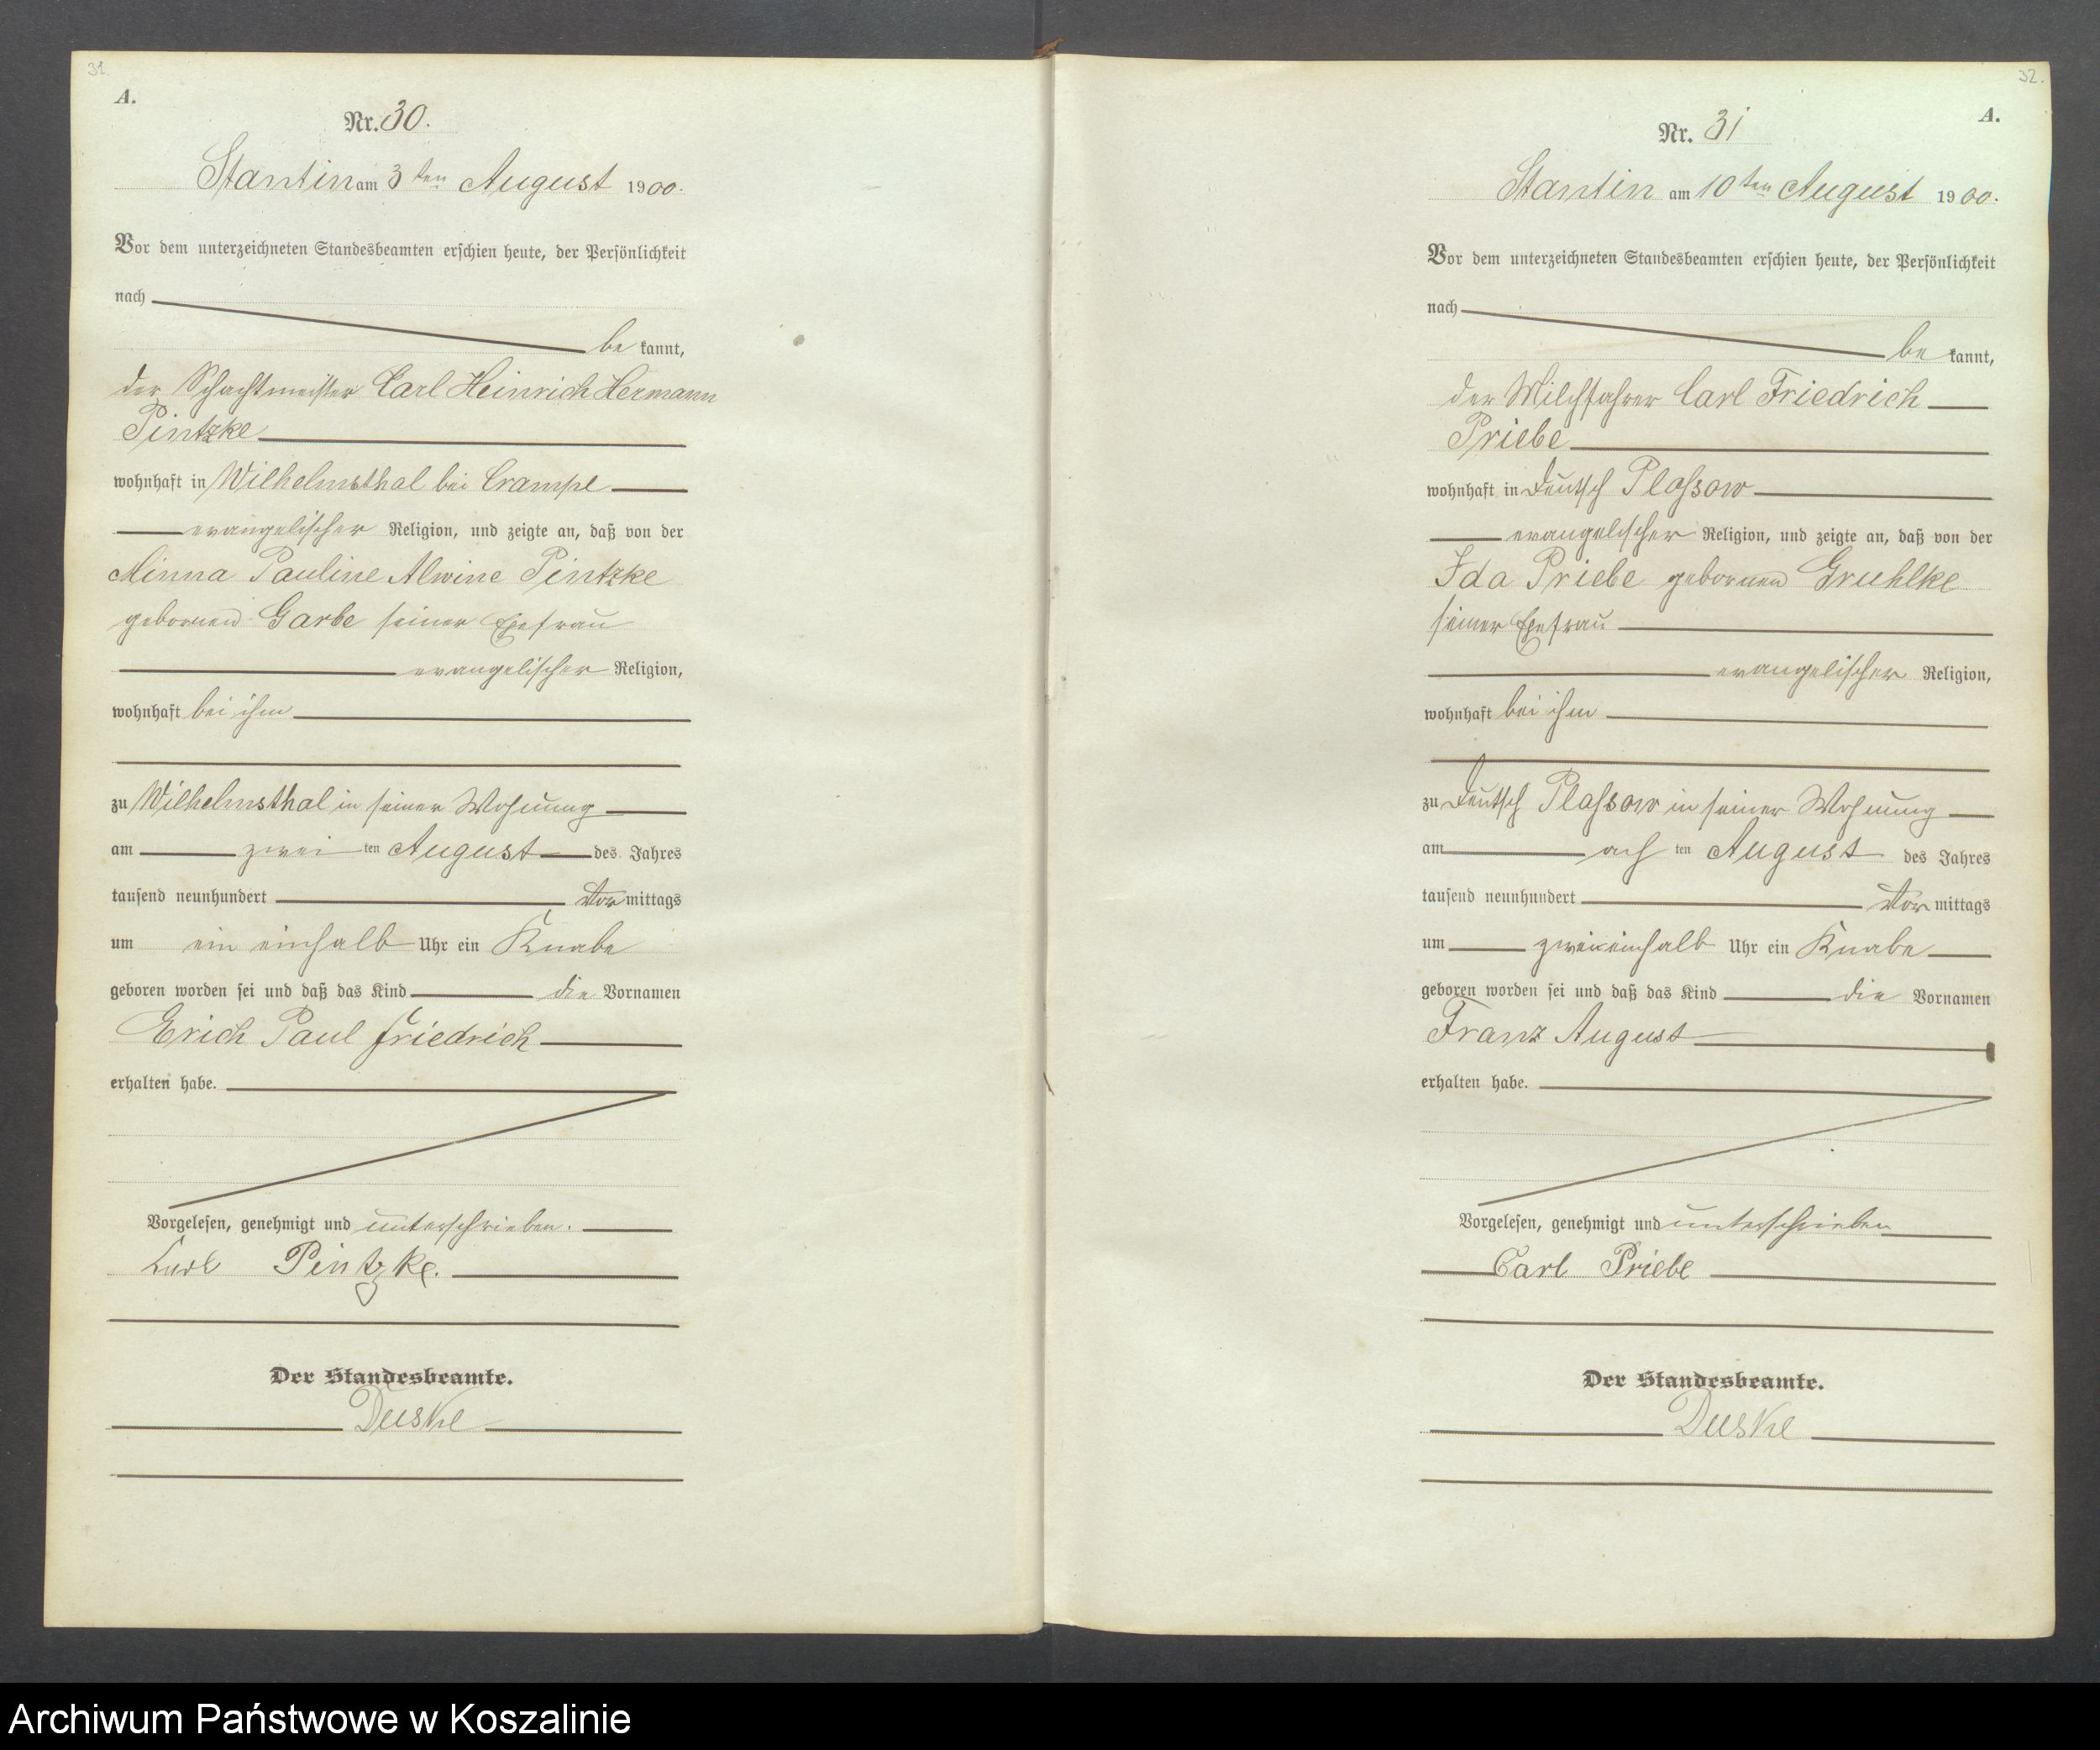 31.
A.
Nr. 30.
Stantin am 3ten August 1900.
Vor dem unterzeichneten Standesbeamten erschien heute, der Persönlichkeit
nach
be kannt,
der Schachtmeister Carl Heinrich Hermann
Pintzke
wohnhaft in Wilhelmsthal bei Crampe
evangelischer Religion, und zeigte an, daß von der
Minna Pauline Alwine Pintzke
geborenen Garbe seiner Ehefrau
evangelischer Religion,
wohnhaft bei ihm
zu Wilhelmsthal in seiner Wohnung
am zwei ten August des Jahres
tausend neunhundert Vor mittags
um ein einhalb Uhr ein Knabe
geboren worden sei und daß das Kind die Vornamen
Erich Paul Friedrich
erhalten habe.
Vorgelesen, genehmigt und unterschrieben.
Karl Pintzke.
Der Standesbeamte.
Duske
32.
A.
Nr. 31
Stantin am 10ten August 1900.
Vor dem unterzeichneten Standesbeamten erschien heute, der Persönlichkeit
nach
be kannt,
der Milchfahrer Carl Friedrich
Priebe
wohnhaft in Deutsch Plassow
evangelischer Religion, und zeigte an, daß von der
Ida Priebe geborenen Gruhlke
seiner Ehefrau
evangelischer Religion,
wohnhaft bei ihm
zu Deutsch Plassow in seiner Wohnung
am ach ten August des Jahres
tausend neunhundert Vor mittags
um zweieinhalb Uhr ein Knabe
geboren worden sei und daß das Kind die Vornamen
Franz August
erhalten habe.
Vorgelesen, genehmigt und unterschrieben
Carl Priebe
Der Standesbeamte.
Duske
Archiwum Państwowe w Koszalinie